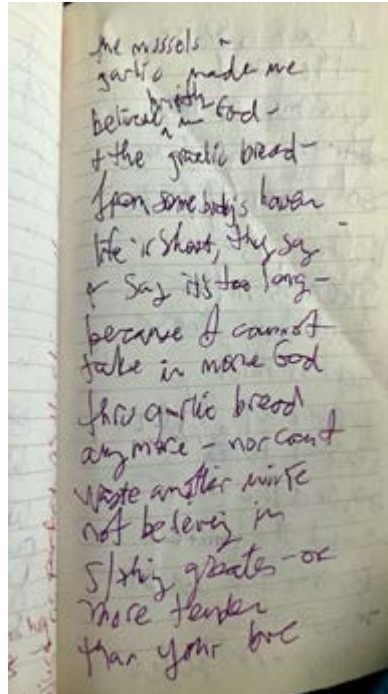 the mussels n
garlic made me
believe in God –
& the garlic bread –
from somebody's haven
life is short, they say
& say it's too long –
because I cannot
take in more God
thru garlic bread
any more – nor can I
waste another minute
not believing in
s/thing greater – or
more tender
than your love